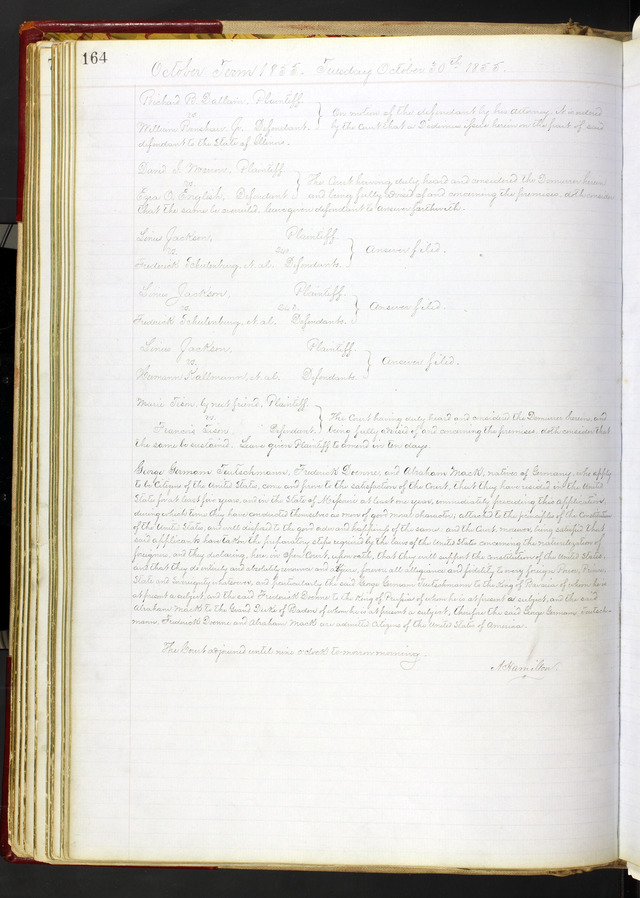 164
October Term 1855. Tuesday October 30th 1855.
Richard P. Plaintiff
vs. } On motion of the defendant by his Attorney, it is ordered
William Renshaw, Jr. Defendant. by the Court that a Dedimus issue herein on the part of said
defendant to the State of Illinois.
David I. Plaintiff.
vs. } The Court having duly heard and considered the Demurrer herein
Ezra O. English, Defendant. and being fully advised of and concerning the premises, doth consider
that the same be overruled, leave given defendant to answer forthwith.
Louis Jackson, Plaintiff
vs. } Answer filed.
Frederick Schulenburg, et al. Defendants.
Louis Jackson, Plaintiff.
vs } Answer filed.
Fredrick Schulenburg, et al. Defendants.
Louis Jackson, Plaintiff
vs. } Answer filed.
Hermann Hallmann, et al. Defendants.
Maria by next friend, Plaintiff
vs. } The Court having duly heard and considered the Demurrer herein, and
Francis Defendant. being fully advised of and concerning the premises, doth consider that
the same be sustained. Leave given Plaintiff to amend in ten days.
George Germann Teutschmann, Frederick Droenne, and Abraham Mack, natives of Germany, who apply
to be Citizens of the United States, come and prove to the satisfaction of the Court, that they have resided in the United
States for at least five years, and in the State of Missouri at least one year, immediately preceding this application,
during which time they have conducted themselves as men of good moral character, attached to the principles of the Constitution
of the United States, and well disposed to the good order and happiness of the same, and the Court, moreover, being satisfied that
said applicants have taken the preparatory steps required by the laws of the United States concerning the naturalization of
foreigners, and they declaring, here in open Court, upon oath, that they will support the Constitution of the United States,
and that they do entirely and absolutely renounce and abjure, forever all allegiance and fidelity to every foreign Power, Prince,
State and Sovereignty whatsoever, and particularly the said George Germann Teutschmann to the King of Bavaria of whom he is
at present a subject, and the said Frederick Droenne to the King of Prussia of whom he is at present a subject, and the said
Abraham Mack to the Grand Duke of Baden of whom he is at present a subject, therefore the said George Germann Teutsch-
mann, Frederick Droenne and Abraham Mack are admitted Citizens of the United States of America.
The Court adjourned until nine o'clock to-morrow morning.
A Hamilton.